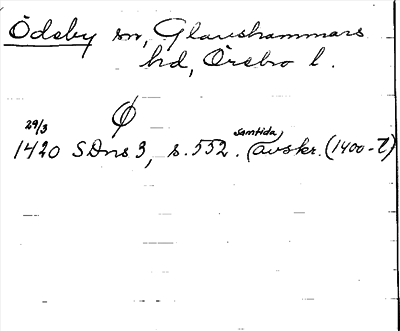 Ödeby sn, Glanshammars
hd, Örebro l.
Ø
29/3
1420 SDns 3, s. 552. (samtida) avskr. (1400-t)